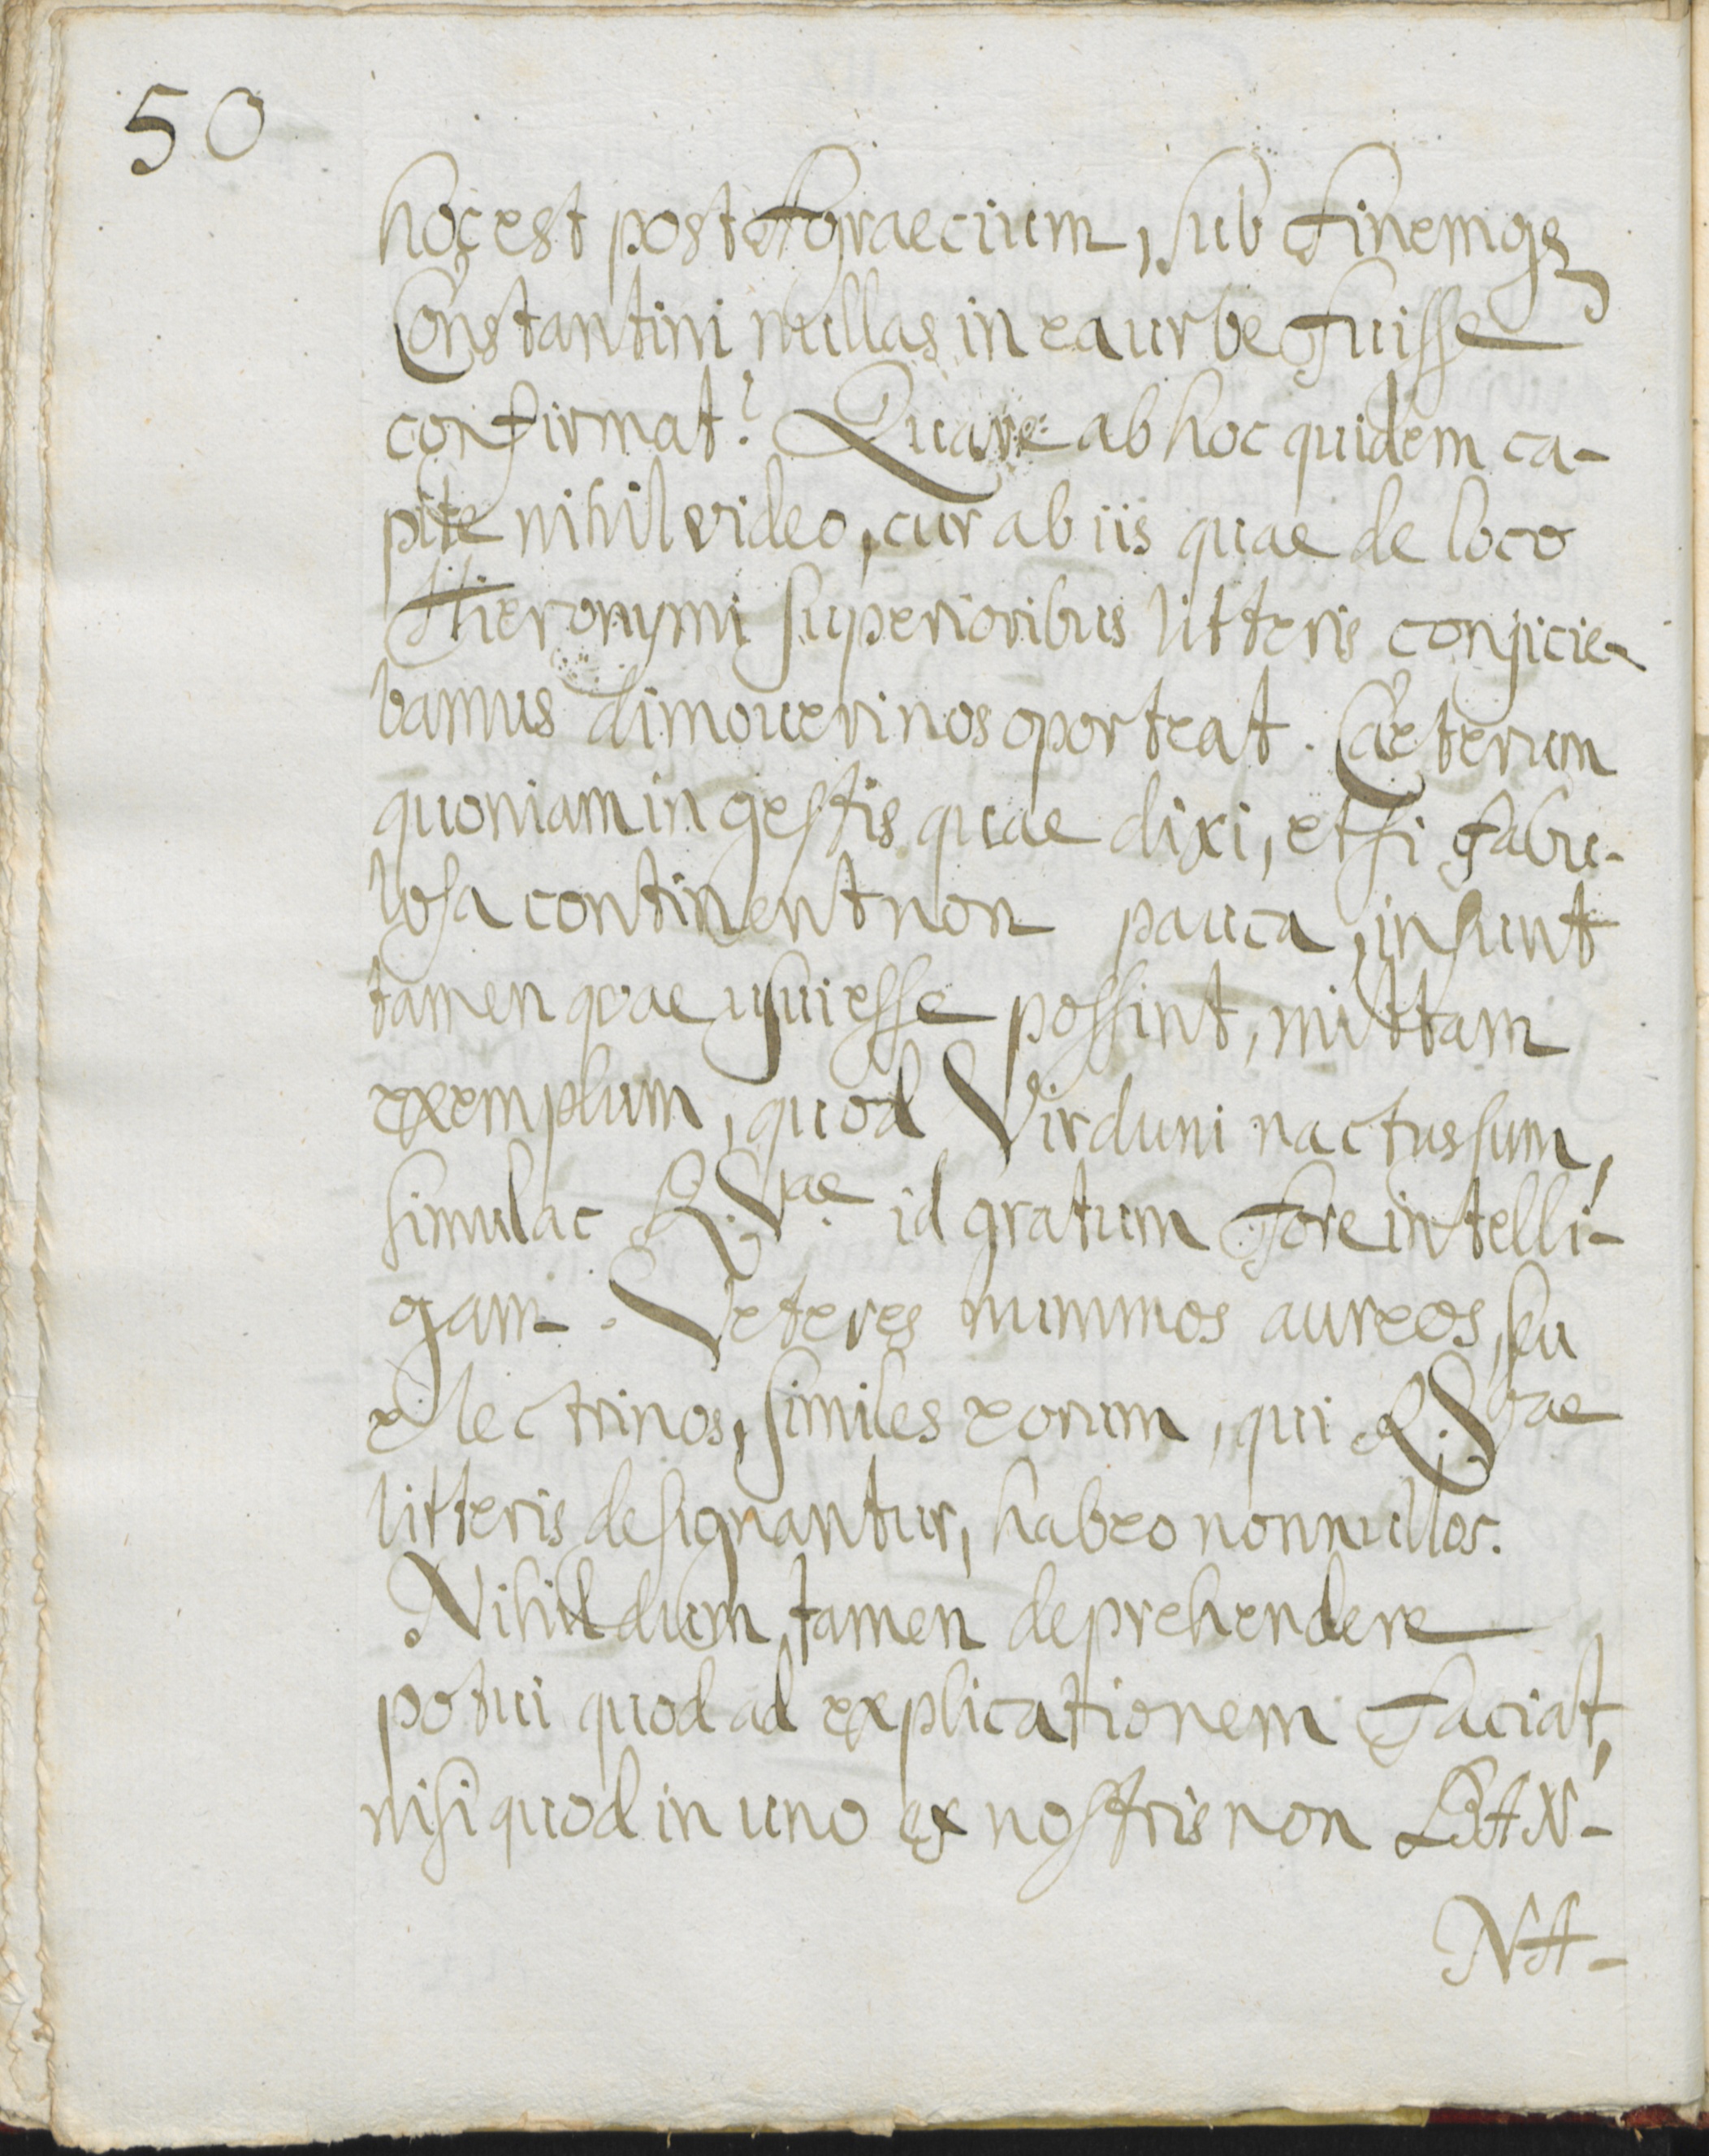 50
hoc est post Agraecium, sub finemqz
Constantini nullas in ea urbe fuisse
confirmat? Quare ab hoc quidem ca-
pite nihil video, cur ab iis quae de loco
Hieronymi superioribus litteris conjicie-
bamus dimoveri nos oporteat. Caeterum
quoniam in gestis quae dixi, etsi fabu-
losa continent non pauca, insunt
tamen quae usui esse possint, mittam
exemplum, quod Virduni nactus sum,
simulac R. Vae id gratum fore intelli-
gam. Veteres nummos aureos, seu
electrinos, similes eorum, qui R. Vae
litteris designantur, habeo nonnullos.
Nihildum tamen deprehendere
potui quod ad explicationem faciat,
nisi quod in uno ex nostris non BAN-
NA-